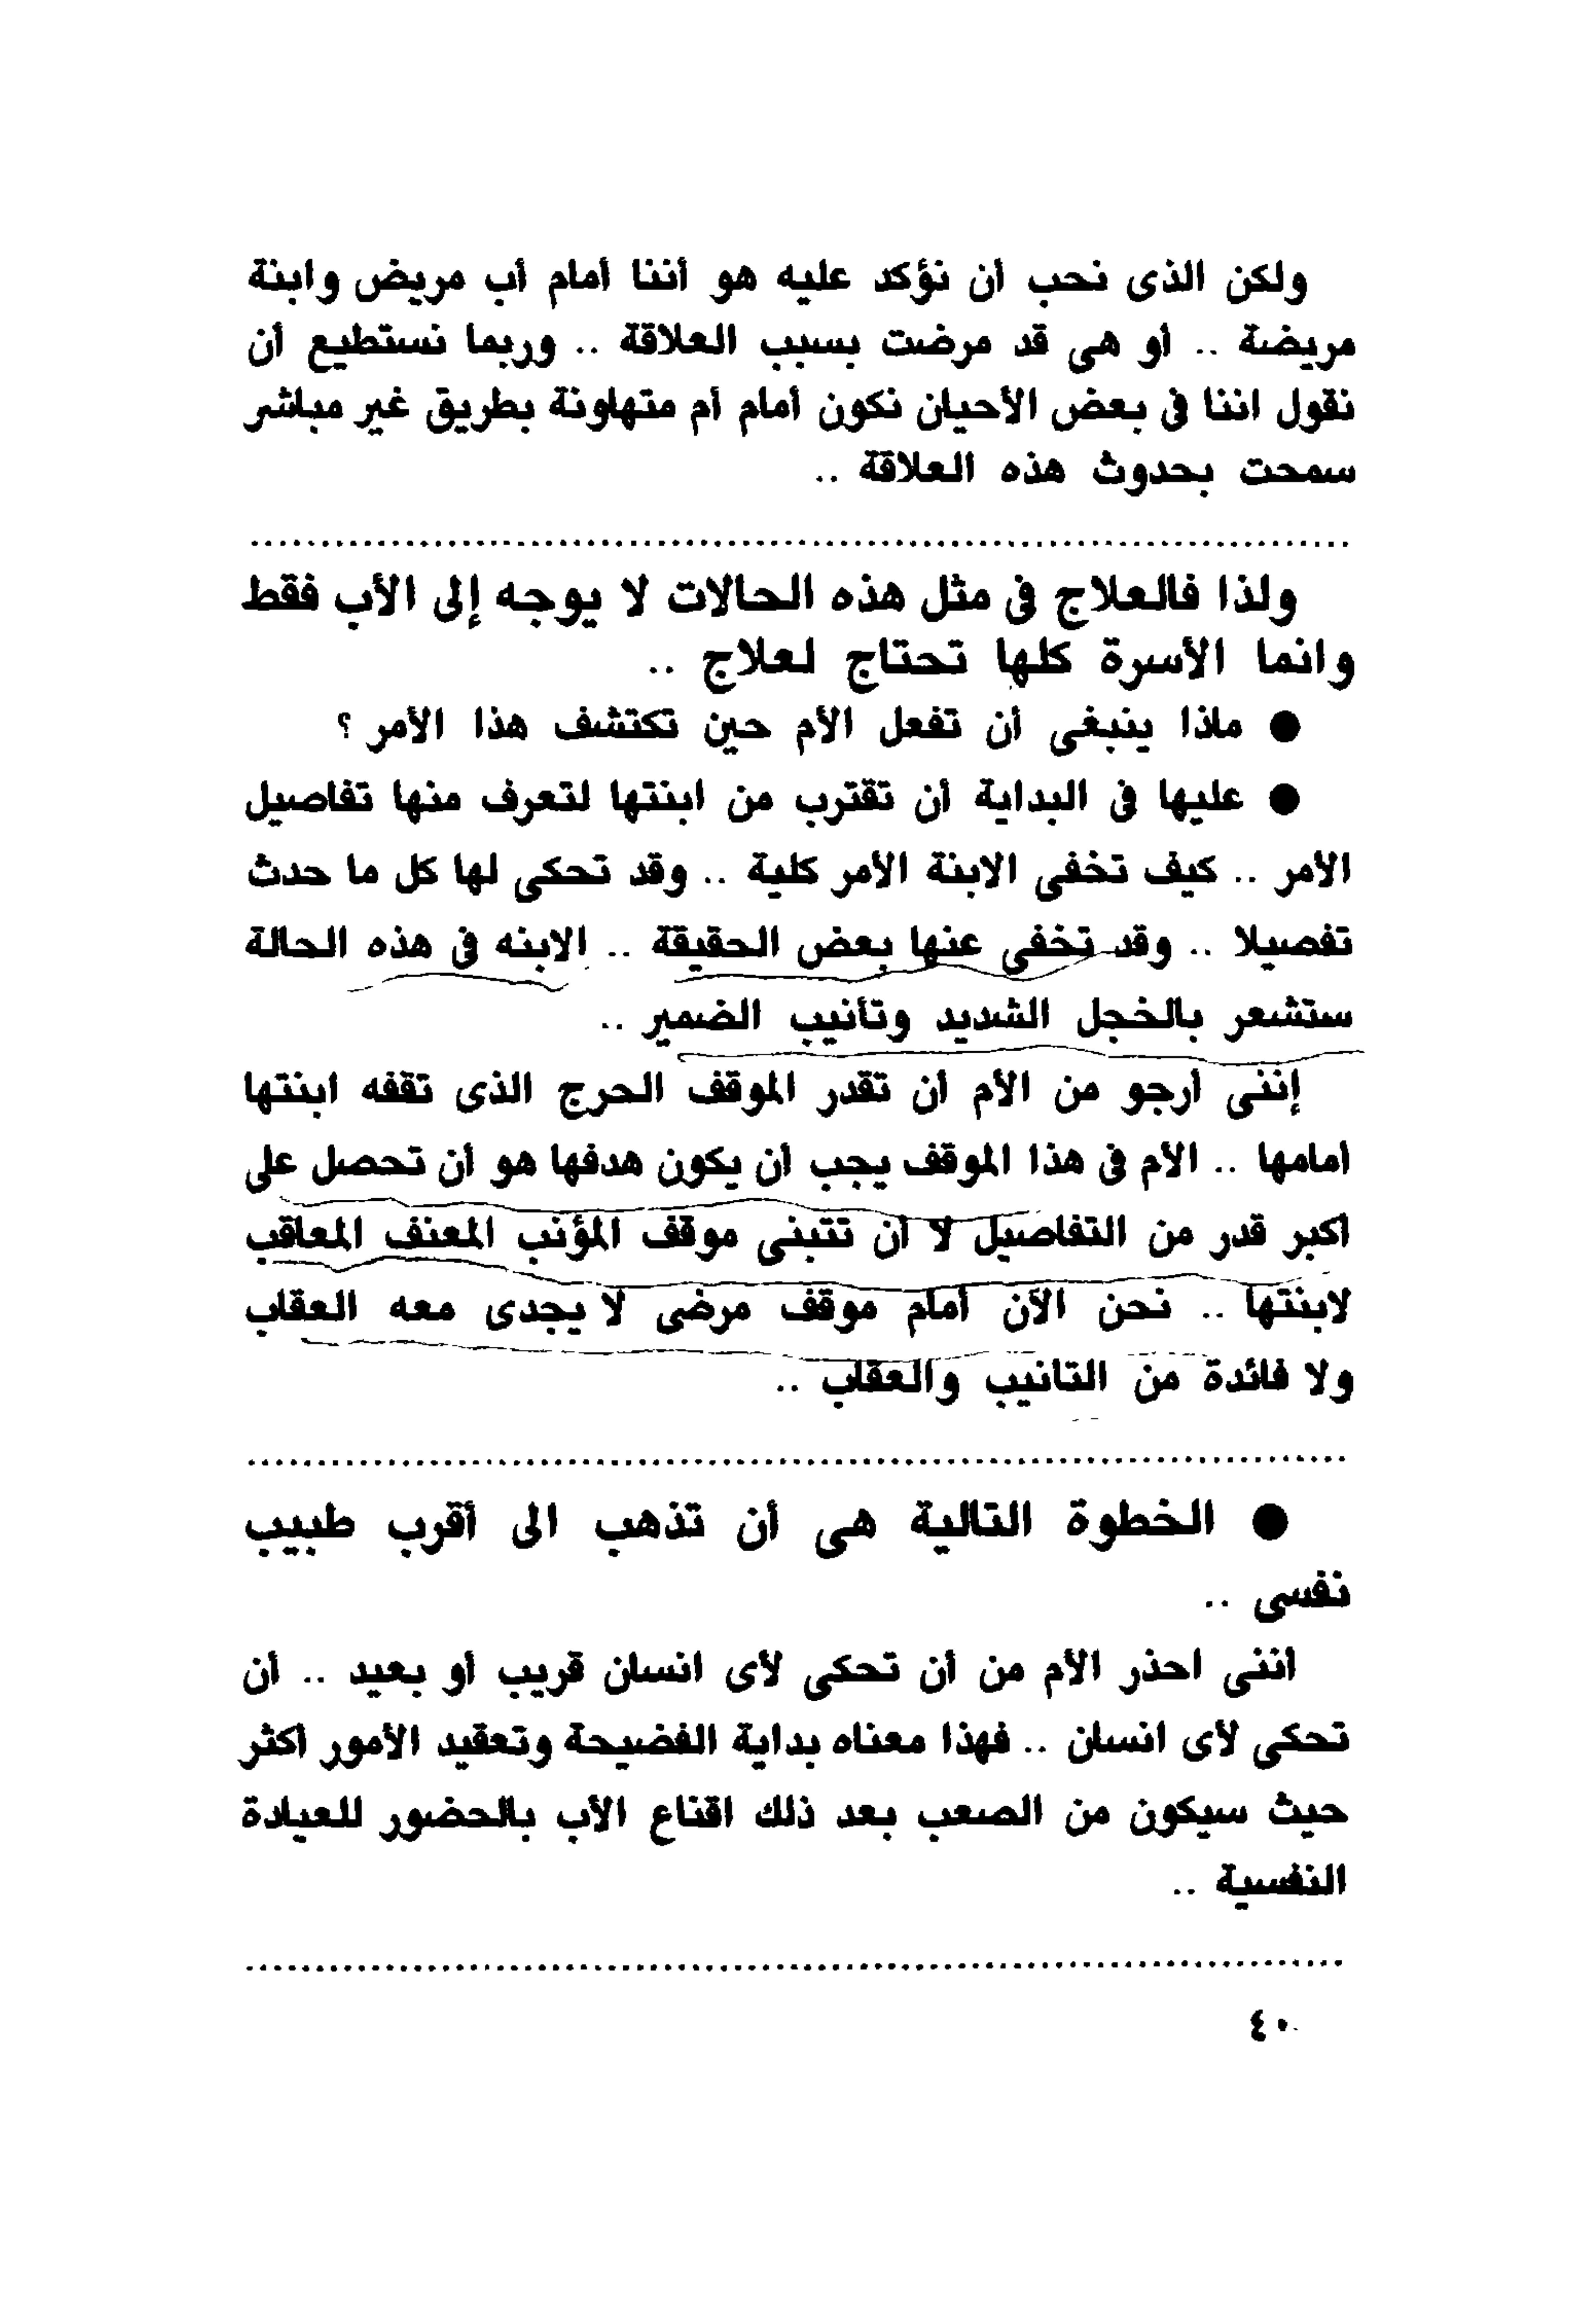 ولكن الذى نحب أن نؤكد عليه هو أننا أمام أب مريض وابنة
مريضة .. أو هى قد مرضت بسبب العلاقة .. وربما نستطيع أن
نقول اننا فى بعض الأحيان نكون أمام أم متهاونة بطريق غير مباشر
سمحت بحدوث هذه العلاقة ..
ولذا فالعلاج فى مثل هذه الحالات لا يوجه إلى الأب فقط
وانما الأسرة كلها تحتاج لعلاج ..
● ماذا ينبغى أن تفعل الأم حين تكتشف هذا الأمر ؟
● عليها فى البداية أن تقترب من ابنتها لتعرف منها تفاصيل
الأمر .. كيف تخفى الابنة الأمر كلية .. وقد تحكى لها كل ما حدث
تفصيلا .. وقد تخفى عنها بعض الحقيقة .. الابنه فى هذه الحالة
ستشعر بالخجل الشديد وتأنيب الضمير ..
إننى أرجو من الأم أن تقدر الموقف الحرج الذى تقفه ابنتها
أمامها .. الأم فى هذا الموقف يجب أن يكون هدفها هو أن تحصل على
أكبر قدر من التفاصيل لا أن تتبنى موقف المؤنب المعنف المعاقب
لابنتها .. نحن الآن أمام موقف مرضى لا يجدى معه العقاب
ولا فائدة من التانيب والعقاب ..
● الخطوة التالية هى أن تذهب الى أقرب طبيب
نفسى ..
أننى احذر الأم من أن تحكى لأى انسان قريب أو بعيد .. أن
تحكى لأى انسان .. فهذا معناه بداية الفضيحة وتعقيد الأمور أكثر
حيث سيكون من الصعب بعد ذلك اقناع الأب بالحضور للعيادة
النفسية ..
٤٠